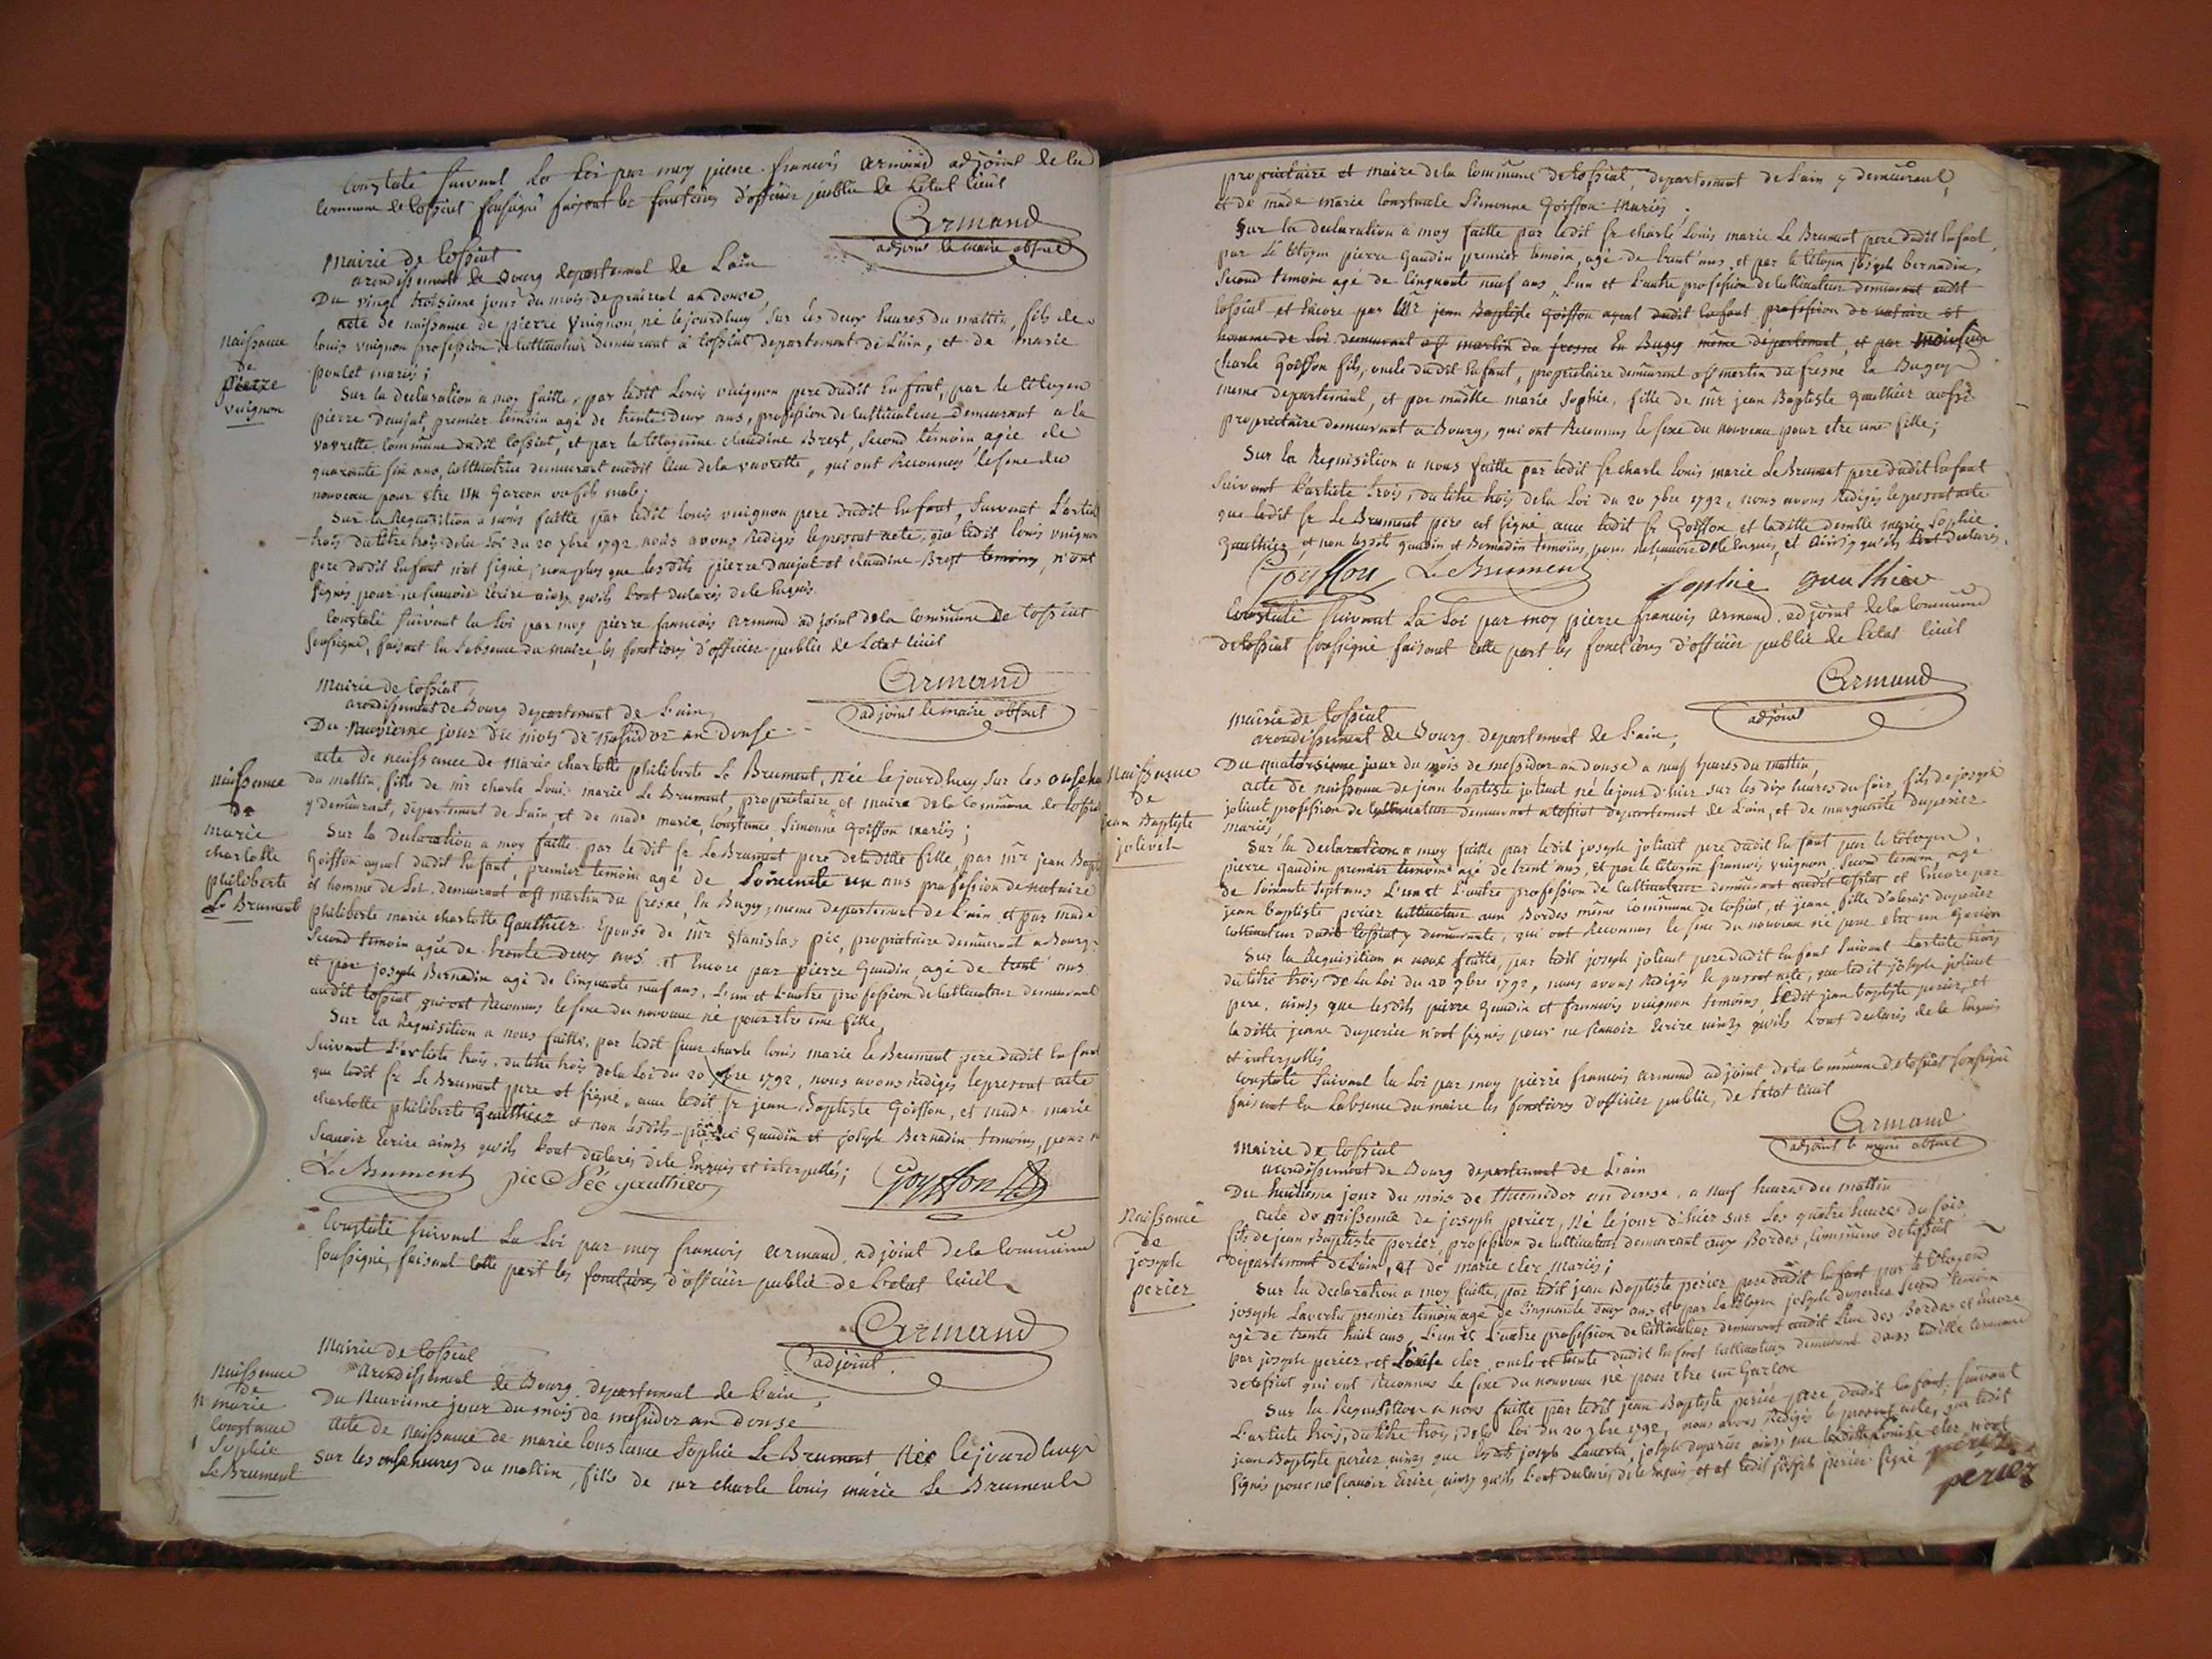 Constaté suivant la Loi par moy pierre francois armand adjoint de la
Commune de Tossiat sousigné faisant les fonctions d'officier public de L'etat Civil
Armand
adjoint le maire absent
Mairie de Tossiat
arondissement de Bourg departement de Lain
Du vingt troisieme jour du mois de prairial an douse,
acte de naissance de pierre vuignon, né lejourdhuy sur les deux heures du mattin, fils de
Naissance
de
pierre
vuignon
louis vuignon profession de cultivateur demeurant a Tossiat departement de L'ain, et de marie
poulet mariés;
Sur la declaration a moy faitte, par ledit Louis vuignon pere dudit Enfant, par le Citoyen
pierre Daujat, premier temoin agé de trente Deux ans, profession de Cultivateur Demeurant a la
vavrette Commune dudit Tossiat, et par la Citoyenne claudine Brest, Second témoin, agée de
quarante six ans, cultivatrice demeurant audit lieu dela vavrette, qui ont Reconnus le sexe du
nouveau pour etre un Garcon ou fils male;
Sur la Requisition a nous faitte par ledit louis vuignon pere dudit Enfant, Suivant L'article
trois du titre trois dela Loi du 20 7bre 1792, nous avons Redigés le present acte, que ledit louis vuignon
pere dudit Enfant n'at signé, non plus que lesdits pierre daujat et claudine Brest temoins, n'ont
signés pour ne scavoir Ecrire ainsy qu'ils L'ont declarés dele Enquis.
Constaté suivant la Loi par moy pierre francois armand adjoint dela Commune de Tossiat
sousigné, faisant En L'absence du maire, les fonctions d'officier public de L'etat Civil
Armand
adjoint le maire absent
Mairie de Tossiat
arondissement de Bourg departement de L'ain,
Du Neuvieme jour du mois de messidor an douse
Naissance
de
marie
charlotte
philiberte
Le Brument
acte de naissance de marie charlotte philiberte Le Brument, née lejourdhuy sur les onse
du mattin, fille de mr charle Louis marie Le Brument, propriétaire et maire dela Commune de Tossiat
y demeurant, département de L'ain, et de made marie, Constance, Simonne Goiffon mariés;
Sur la declaration a moy faitte par le dit sr Le Brument pere deladitte fille, par mr jean
Goiffon ayeul dudit Enfant, premier temoin agé de Soixante un ans profession de notaire
et homme de Loi demeurant a st martin du fresne, En Bugey, meme departement de L'ain et par made
philiberte marie charlotte Gauthier Epouse de mr Stanislas pic, propriétaire demeurant a Bourg
Second temoin agée de trente deux ans et Encore par pierre Gaudin agé de trent ans
et par joseph Bernadin agé de Cinquante neuf ans, L'un et L'autre profession de Cultivateur demeurant
audit Tossiat, qui ont Reconnus le sexe du nouveau né pour etre une fille,
Sur la Requisition a nous faitte, par ledit sieur charle louis marie le Brument pere dudit Enfant
Suivant L'article trois, du titre trois dela Loi du 20 7bre 1792, nous avons Redigés le present acte
que ledit sr Le Brument pere at signé, avec ledit sr jean Baptiste Goiffon, et made marie
charlotte philiberte Gauthier et non lesdits pierre Gaudin et joseph Bernadin temoins, pour
Scavoir Ecrire ainsy qu'ils L'ont declarés dele Enquis et interpellés;
Le Brument pic Née gauthier Goyffon
Constaté suivant La Loi par moy francois armand adjoint dela Commune
sousigné, faisant Cette part les fonctions d'officier public de L'etat Civil
Armand
adjoint
Mairie de Tossiat
arondissement de Bourg departement de L'ain,
Du Neuvieme jour du mois de messidor an douse
Naissance
de
marie
Constance
Sophie
Le Brument
acte de Naissance de marie Constance Sophie Le Brument Née lejourdhuy
sur les onse heures du mattin, fille de mr charle louis marie Le Brument
propriétaire et maire dela Commune de Tossiat, departement de L'ain y demeurant,
et de made marie Constance Simonne Goiffon Mariés;
Sur la declaration a moy faitte par ledit sr charle Louis marie Le Brument pere dudit Enfant,
par Le Citoyen pierre Gaudin premier temoin, agé de trent'ans, et par le Citoyen joseph bernadin,
Second temoin agé de Cinquante neuf ans, L'un et L'autre profession de Cultivateur demeurant audit
Tossiat et Encore par Mr jean Baptiste Goiffon ayeul dudit Enfant profession de notaire et
homme de Loi demeurant a st martin du fresne En Bugey même département, et par monsieur
charle Goiffon fils, oncle dudit Enfant, propriétaire demeurant a st martin du fresne En Bugey
meme departement, et par madlle marie Sophie, fille de mr jean Baptiste gauthier aussi
propriétaire demeurant a Bourg, qui ont Reconnus le sexe du nouveau pour etre une fille;
Sur la Requisition a nous faitte par ledit sr charle louis marie Le Brument pere dudit Enfant
Suivant L'article trois, du titre trois dela Loi du 20 7bre 1792, nous avons Redigés le present acte
que ledit sr Le Brument pere at signé avec ledit sr Goiffon et laditte demlle marie Sophie
Gauthier et non lesdits gaudin et Bernadin temoins, pour ne scavoir dele Enquis, et ainsy qu'ils L'ont declarés.
Goyffon Le Brument Sophie Gauthier
Constaté suivant La Loi par moy pierre francois armand adjoint dela Commune
de Tossiat sousigné faisant Cette part les fonctions d'officier public de L'etat Civil
Armand
adjoint
Mairie de Tossiat
arondissement de Bourg departement de L'ain,
Naissance
de
jean Baptiste
jolivet
Du quatorsieme jour du mois de messidor an douse a neuf heures du mattin,
acte de naissance de jean baptiste jolivet né le jour d'hier sur les dix heures du soir, fils de joseph
jolivet profession de Cultivateur demeurant a Tossiat departement de L'ain, et de marguerite Duperier
mariés
Sur la declaration a moy faitte par ledit joseph jolivet pere dudit Enfant par le Citoyen,
pierre Gaudin premier temoin agé de trent'ans, et par le Citoyen francois vuignon, Second temoin, agé
de Soixante Sept ans L'un et L'autre profession de Cultivateur demeurant audit Tossiat et Encore par
jean baptiste perier cultivateur aux Bordes même Commune de Tossiat, et jeane fille d'alexis duperier
Cultivateur dudit Tossiat y demeurante, qui ont Reconnus le sexe du nouveau né pour etre un Garcon
Sur la Requisition a nous faitte, par ledit joseph jolivet pere dudit Enfant Suivant L'article trois
du titre trois de La Loi du 20 7bre 1792, nous avons Redigés le present acte, que ledit joseph jolivet
pere, ainsy que lesdits pierre Gaudin et francois vuignon temoins, ledit jean baptiste perier, et
laditte jeane duperier n'ont signés pour ne scavoir Ecrire ainsy qu'ils L'ont declarés dele Enquis
et interpellés
Constaté suivant la Loi par moy pierre francois armand adjoint dela Commune de Tossiat sousigné
faisant En L'absence du maire les fonctions d'officier public, de L'etat Civil
Armand
adjoint le maire absent
Mairie de Tossiat
arondissement de Bourg departement de L'ain
Du huitieme jour du mois de Thermidor an douse, a neuf heures du mattin
Naissance
de
joseph
perier
acte de naissance de joseph perier, Né le jour d'hier sur Les quatre heures du soir,
fils de jean Baptiste perier, profession de Cultivateur demeurant aux Bordes, Commune de Tossiat
departement de L'ain, et de marie clex mariés;
Sur la declaration a moy faitte, par ledit jean Baptiste perier pere dudit Enfant par le Citoyen
joseph Laverta premier temoin agé de Cinquante deux ans et par le Citoyen joseph duperier Second temoin
agé de trente huit ans, L'un et L'autre profession de Cultivateur demeurant audit Lieu des Bordes et Encore
par joseph perier, et Louise clex, oncle et tante dudit Enfant Cultivateurs demeurant dans laditte Commune
de Tossiat qui ont Reconnus Le sexe du nouveau né pour etre un Garcon
Sur la Requisition a nous faitte par ledit jean Baptiste perier pere dudit Enfant, suivant
L'article trois, du titre trois, dela Loi du 20 7bre 1792, nous avons Redigés le present acte, que ledit
jean Baptiste perier ainsy que lesdits joseph Laverta, joseph duperier ainsi que laditte Louise clex n'ont
signés pour ne scavoir Ecrire, ainsy qu'ils L'ont declarés dele Enquis et at ledit joseph perier signé
perier